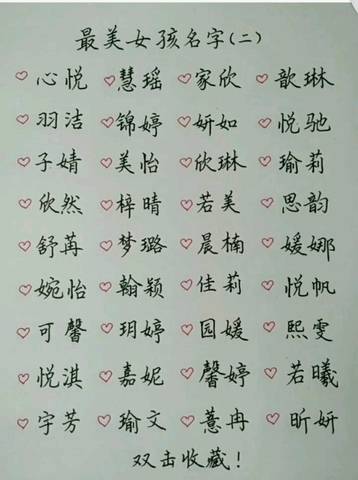 最美女孩名字(二)
♡心悦 ♡慧瑶 ♡家欣 ♡歆琳
♡羽洁 ♡锦婷 ♡妍如 ♡悦驰
♡子婧 ♡美怡 ♡欣琳 ♡瑜莉
♡欣然 ♡梓晴 ♡若美 ♡思韵
♡舒苒 ♡梦璐 ♡晨楠 ♡媛娜
♡婉怡 ♡翰颖 ♡佳莉 ♡悦帆
♡可馨 ♡玥婷 ♡园媛 ♡熙雯
♡悦淇 ♡嘉妮 ♡馨婷 ♡若曦
♡宇芳 ♡瑜文 ♡薏冉 ♡昕妍
双击收藏!